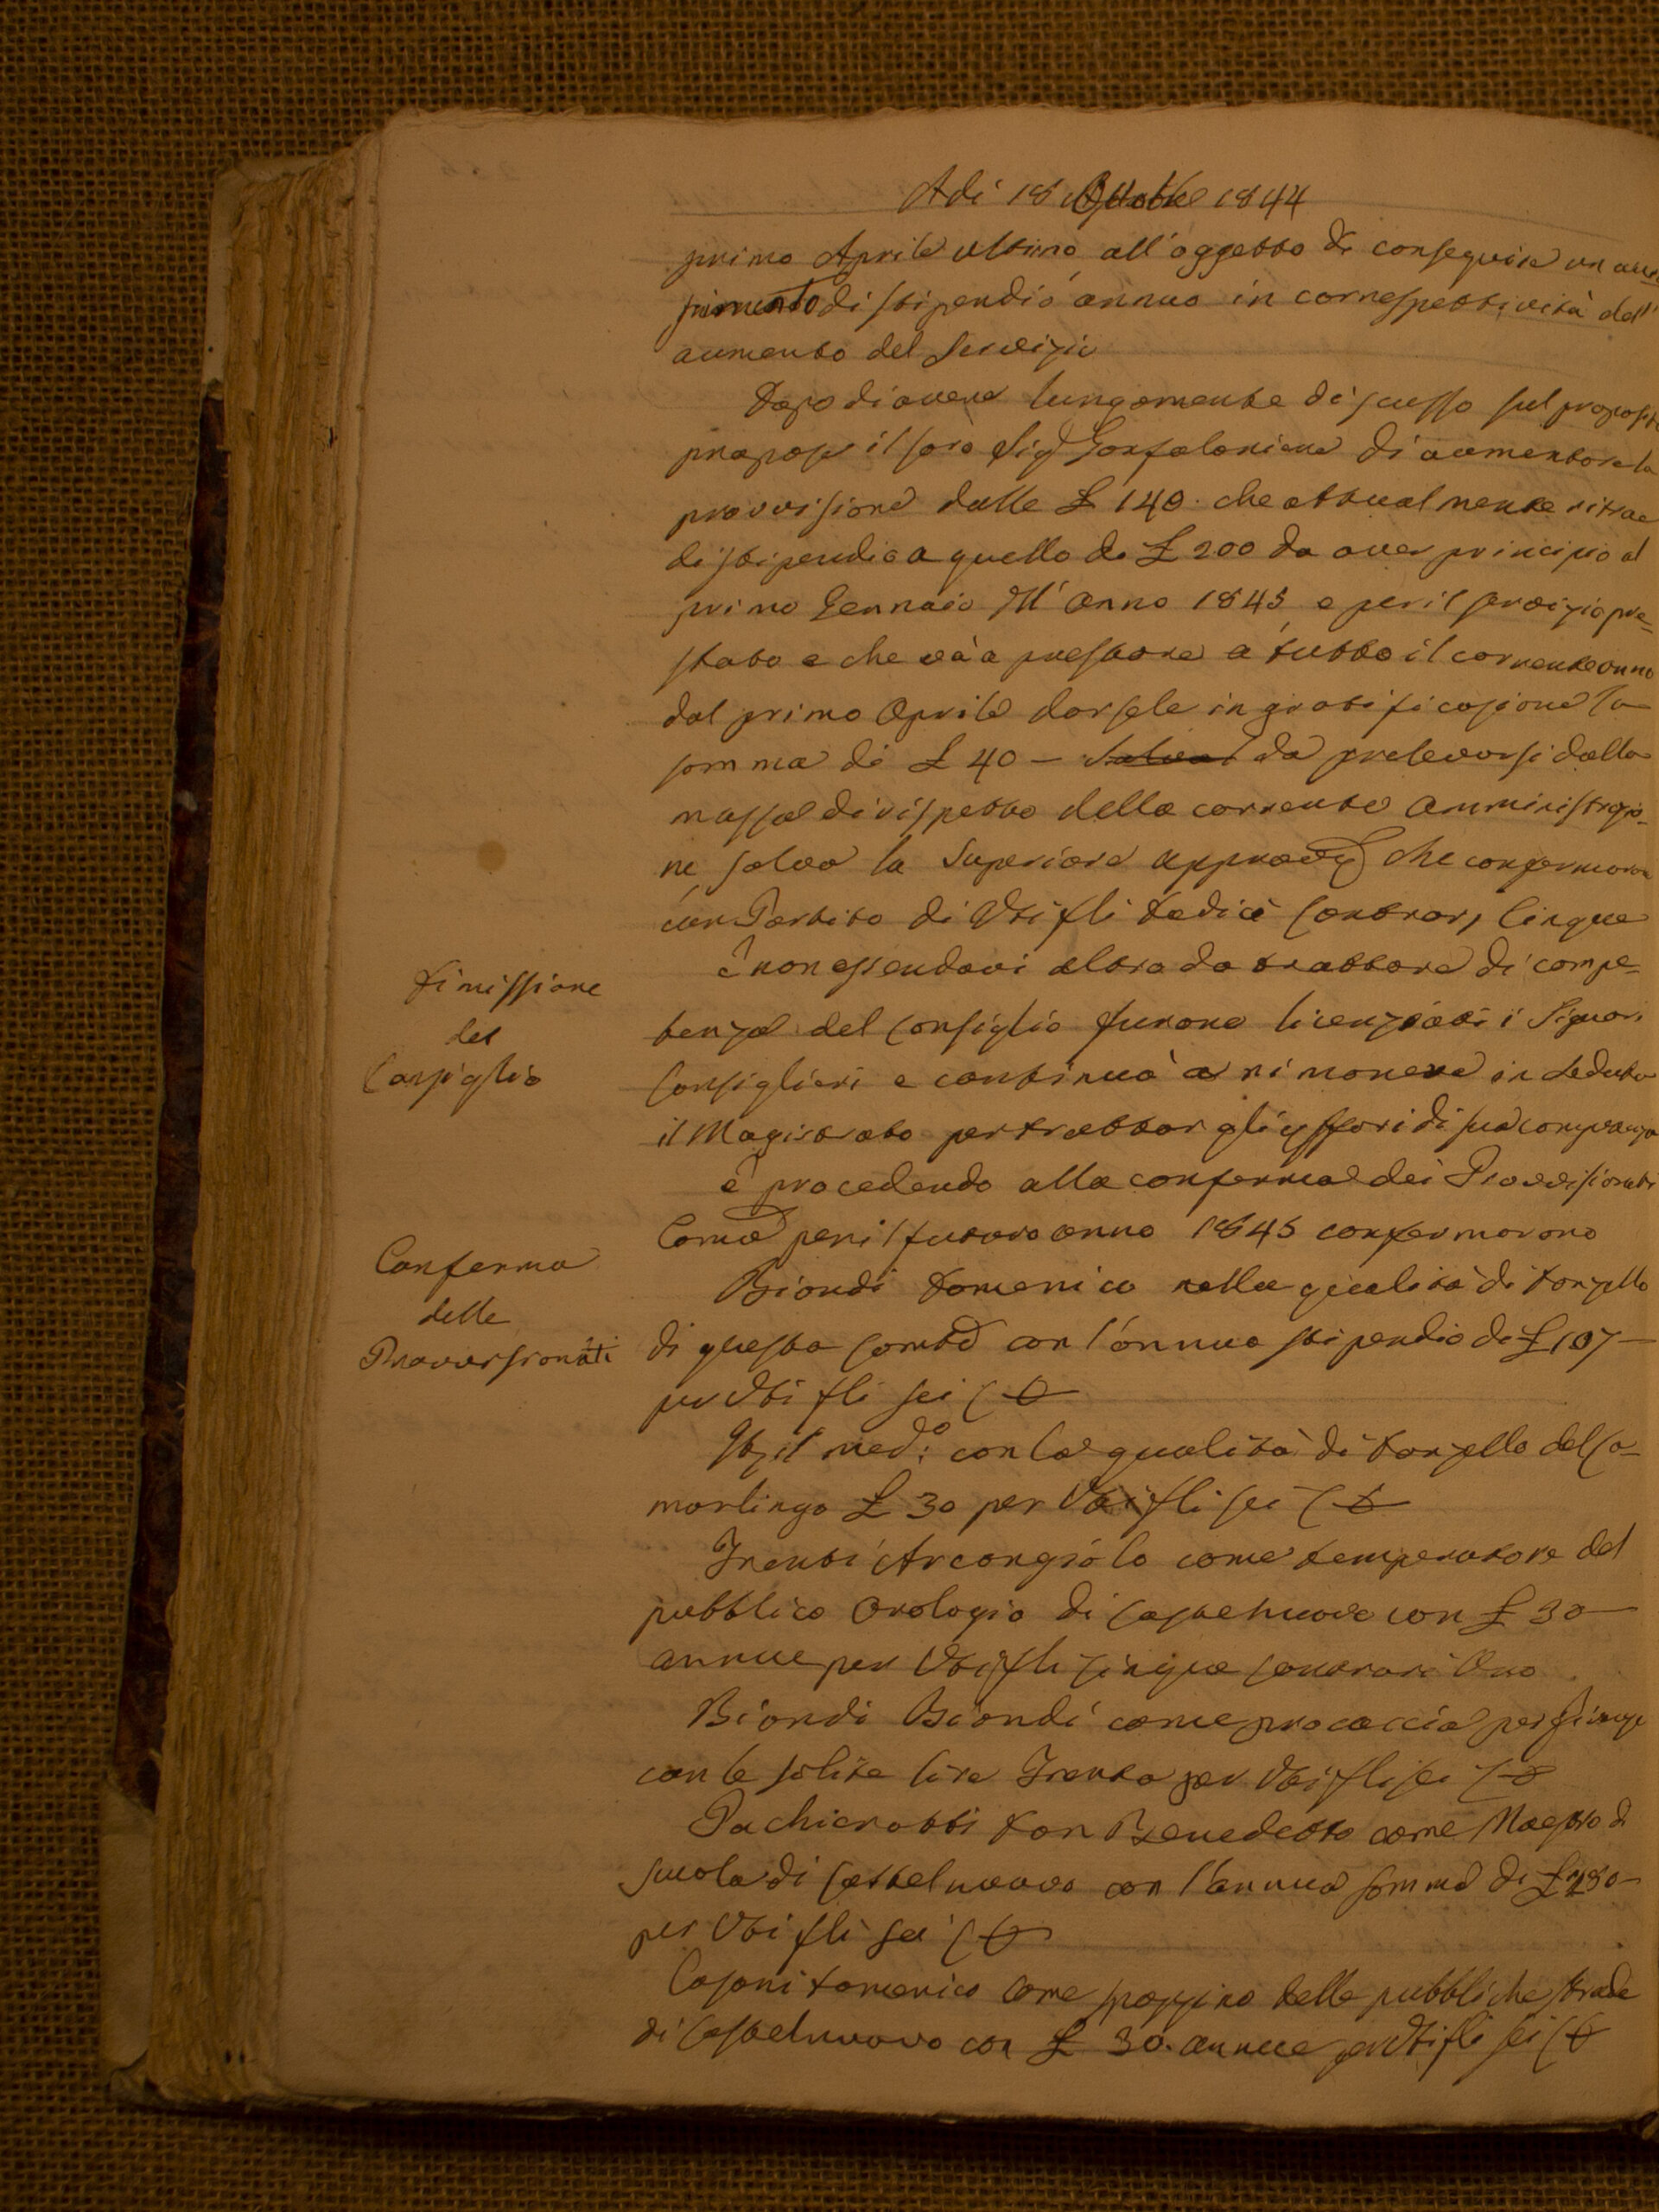 Adi 18 Ottobre 1844
primo Aprile ultimo all'oggetto di conseguire un au
di stipendio annuo in correspettività dell'
aumento del Servizio
Dopo di avere lungamente discusso sul proposito
propose il loro Sig Gonfaloniere di aumentare la
provvisione dalle £ 140. che attualmente ritrae
di stipendio a quello di £ 200 da aver principio al
primo Gennaio dell'Anno 1845 e per il servizio pre=
stato e che và a prestare a tutto il corrente anno
dal primo Aprile darsele in gratificazione la
somma di £ 40 — da prelevarsi dalla
massa di rispetto della corrente Amministrazio=
ne, salva la Superiore approvaz che confermarono
con Partito di Voti fli dodici Contrarj Cinque
E non essendovi altro da trattare di compe=
Dimissione
del
Consiglio
tenza del Consiglio furono licenziati i Signori
Consiglieri e continuò a rimanere in Seduta
il Magistrato per trattar gli affari di sua competenza
E procedendo alla conferma dei Provvisionati
Conferma
delle
Provvisionati
Come per il futuro anno 1845 confermarono
Biondi Domenico nella qualità di Donzello
di questa Comtà con l'annuo stipendio di £ 107 —
per Voti fli sei C
il med:o con la qualità di Donzello del Ca=
marlingo £ 30 per Voti fli sei C
Trenti Arcangiolo come temperatore del
pubblico Orologio di Castelnuovo con £ 30 —
annue per Voti fli Cinque Contrari Uno
Biondi Biondi come procaccia per Firenze
con le solite lire Trenta per Voti fli sei C
Pachierotti Don Benedetto come Maestro di
Scuola di Castelnuovo con l'annua somma di £ 280 —
per Voti fli sei C
Casani Domenico come spazzino delle pubbliche strade
di Castelnuovo con £ 30. annue per Voti fli sei C